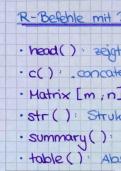 R-Befehle mit
· head() : zeigt
· c() : concate
· Matrix [m,n]
· str() : Struk
· summary() :
· table() : Abs